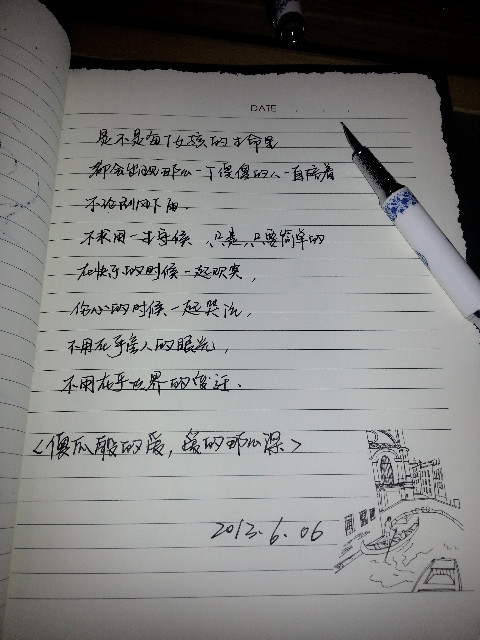 DATE
是不是每个女孩的生命里
都会出现那么一个傻傻的人一直陪着
不论刮风下雨.
不求用一生守候 只是只要简单的
在快乐的时候一起欢笑,
伤心的时候一起哭泣,
不用在乎旁人的眼光,
不用在乎世界的变迁.
<傻瓜般的爱,爱的那么深>
2013.6.06